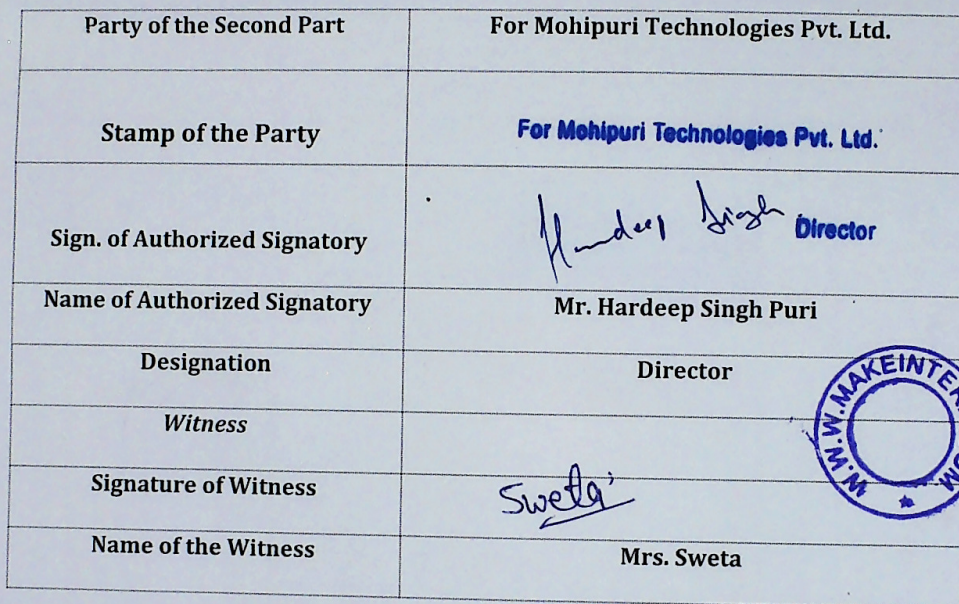 Party of the Second Part For Mohipuri Technologies Pvt. Ltd.
Stamp of the Party For Mohipuri Technologies Pvt. Ltd.
Sign. of Authorized Signatory Hardeep Singh Director
Name of Authorized Signatory Mr. Hardeep Singh Puri
Designation Director
W.W.W.MAKEINTER
Witness
Signature of Witness Sweta
Name of the Witness Mrs. Sweta